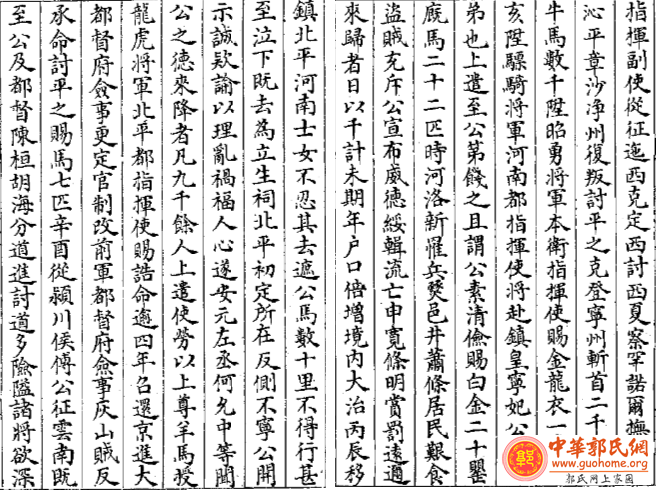 指揮副使從征迤西克定西討西夏察罕諾爾撫
沁平章沙净州復叛討平之克登寧州斬首二千
牛馬數千陞昭勇將軍本衛指揮使賜金龍衣一
亥陞驃騎將軍河南都指揮使將赴鎮皇寧妃公
弟也上遣至公第餞之且謂公素清儉賜白金二十罌
廐馬二十二匹時河洛新罹兵燹邑井蕭條居民艱食
盜賊充斥公宣布威德綏輯流亡申寬條明賞罰遠邇
來歸者日以千計未期年户口倍增境内大治丙辰移
鎮北平河南士女不忍其去遮公馬數十里不得行甚
至泣下既去為立生祠北平初定所在反側不寧公開
示誠欵諭以理亂禍福人心遂安元左丞何允中等聞
公之德來降者凡九千餘人上遣使勞以上尊羊馬授
龍虎將軍北平都指揮使賜誥命逾四年召還京進大
都督府僉事更定官制改前軍都督府僉事灰山賊反
承命討平之賜馬七匹辛酉從潁川侯傅公征雲南既
至公及都督陳桓胡海分道進討道多險隘諸將欲深
中華郭氏網
www.guohome.org
郭氏网上家園